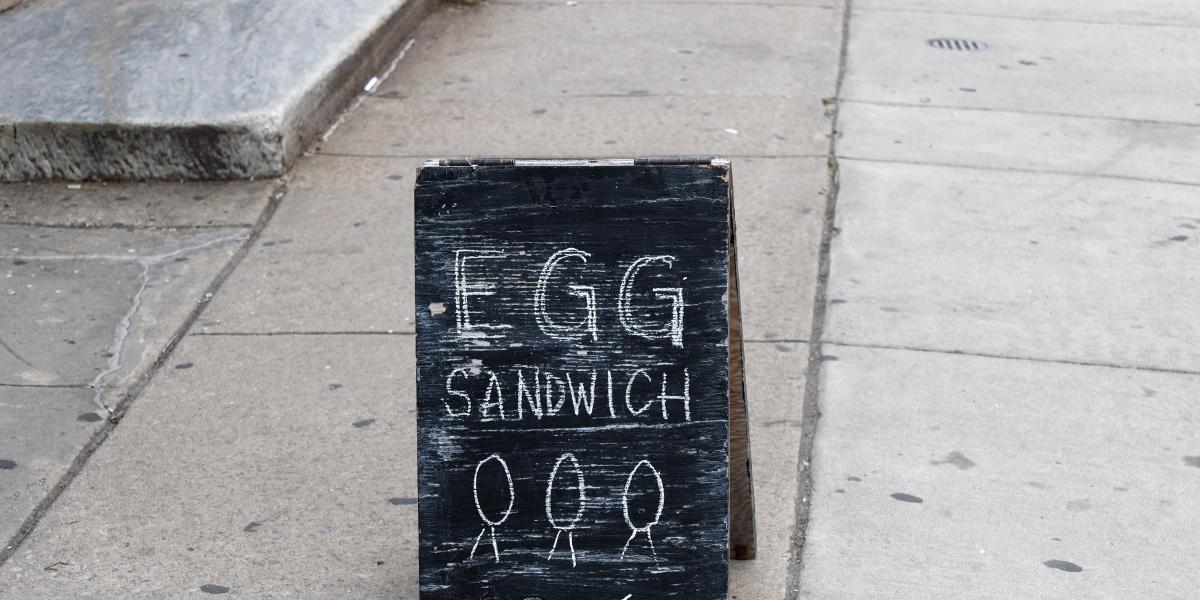 EGG
SANDWICH